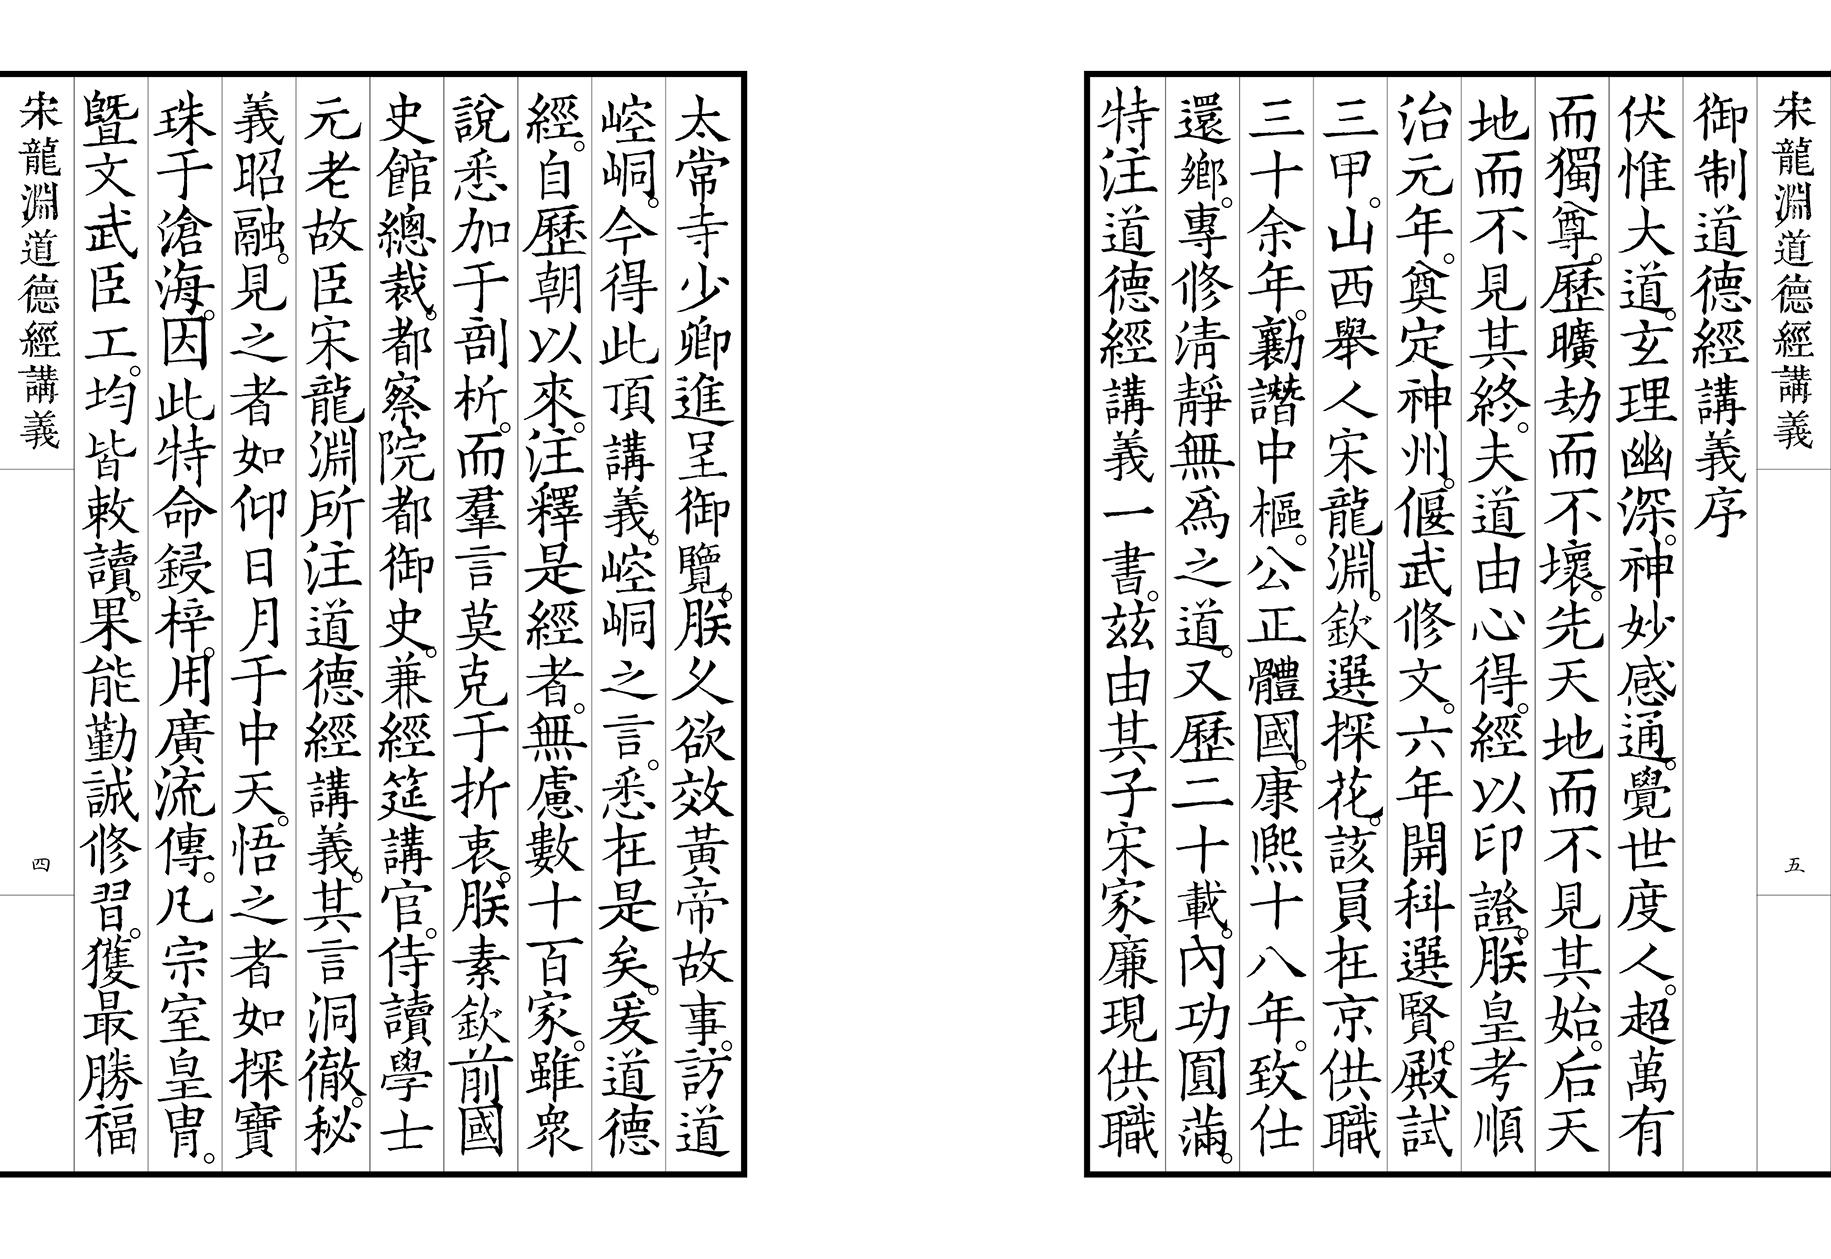 宋龍淵道德經講義
五
御制道德經講義序
伏惟大道。玄理幽深。神妙感通。覺世度人。超萬有
而獨尊。歷曠劫而不壞。先天地而不見其始。后天
地而不見其終。夫道由心得。經以印證。朕皇考順
治元年。奠定神州。偃武修文。六年開科選賢。殿試
三甲。山西舉人宋龍淵。欽選探花。該員在京供職
三十余年。勷譛中樞。公正體國。康熙十八年。致仕
還鄉。專修清靜無為之道。又歷二十載。內功圓滿。
特注道德經講義一書。茲由其子宋家廉現供職
太常寺少卿進呈御覽。朕久欲效黃帝故事。訪道
崆峒。今得此頂講義。崆峒之言。悉在是矣。爰道德
經。自歷朝以來。注釋是經者。無慮數十百家。雖眾
說悉加于剖析。而羣言莫克于折衷。朕素欽前國
史館總裁。都察院都御史。兼經筵講官。侍讀學士
元老故臣宋龍淵所注道德經講義。其言洞徹。秘
義昭融。見之者如仰日月于中天。悟之者如探寶
珠于滄海。因此特命鋟梓。用廣流傳。凡宗室皇冑。
暨文武臣工。均皆敕讀。果能勤誠修習。獲最勝福
宋龍淵道德經講義
四